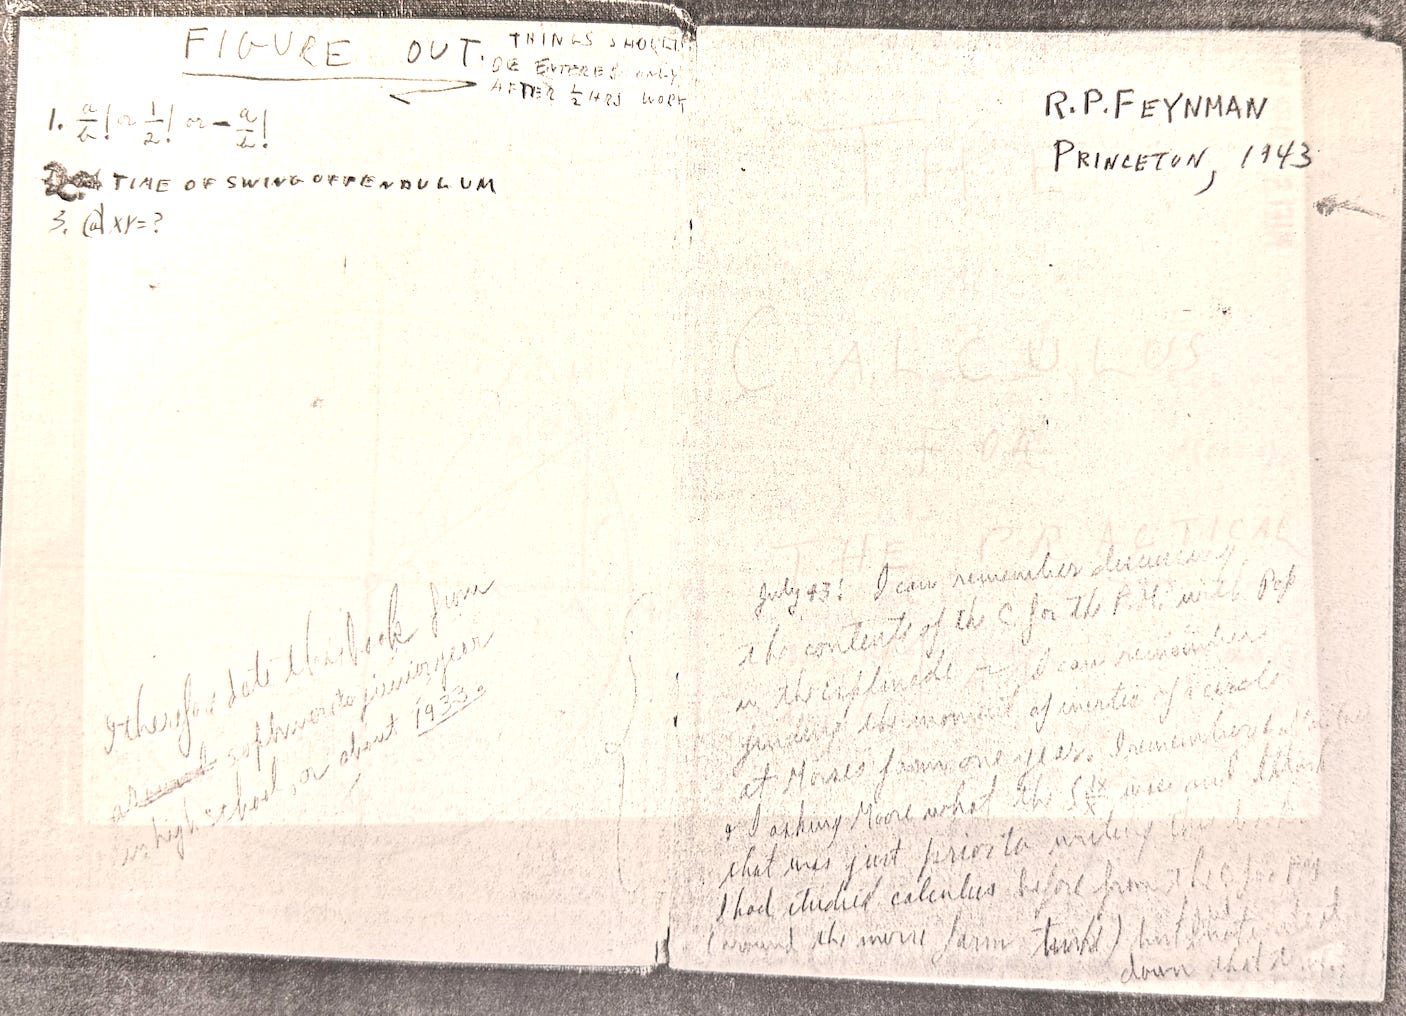 FIGURE OUT.
THINGS SHOULD
BE ENTERED ONLY
AFTER 1/2 HRS WORK
1. a/b! or 1/2! or -a/b!
TIME OF SWING OF PENDULUM
3. (a) XY=?
I therefore date this book from
around sophmore to junior year
in high school, or about 1933.
R.P.FEYNMAN
PRINCETON, 1943
THE
CALCULUS
FOR
THE PRACTICAL
July 43: I can remember discussing
the contents of the C for the P.M. with Pop
in the I can remember
finding the moment of inertia of a circle
at Morris farm one year. I remember
& I asking Moore what the ∫dx/x was and I think
that was just prior to writing this book.
I had studied calculus before from the C for PM
(around the Morris farm time) but
down that